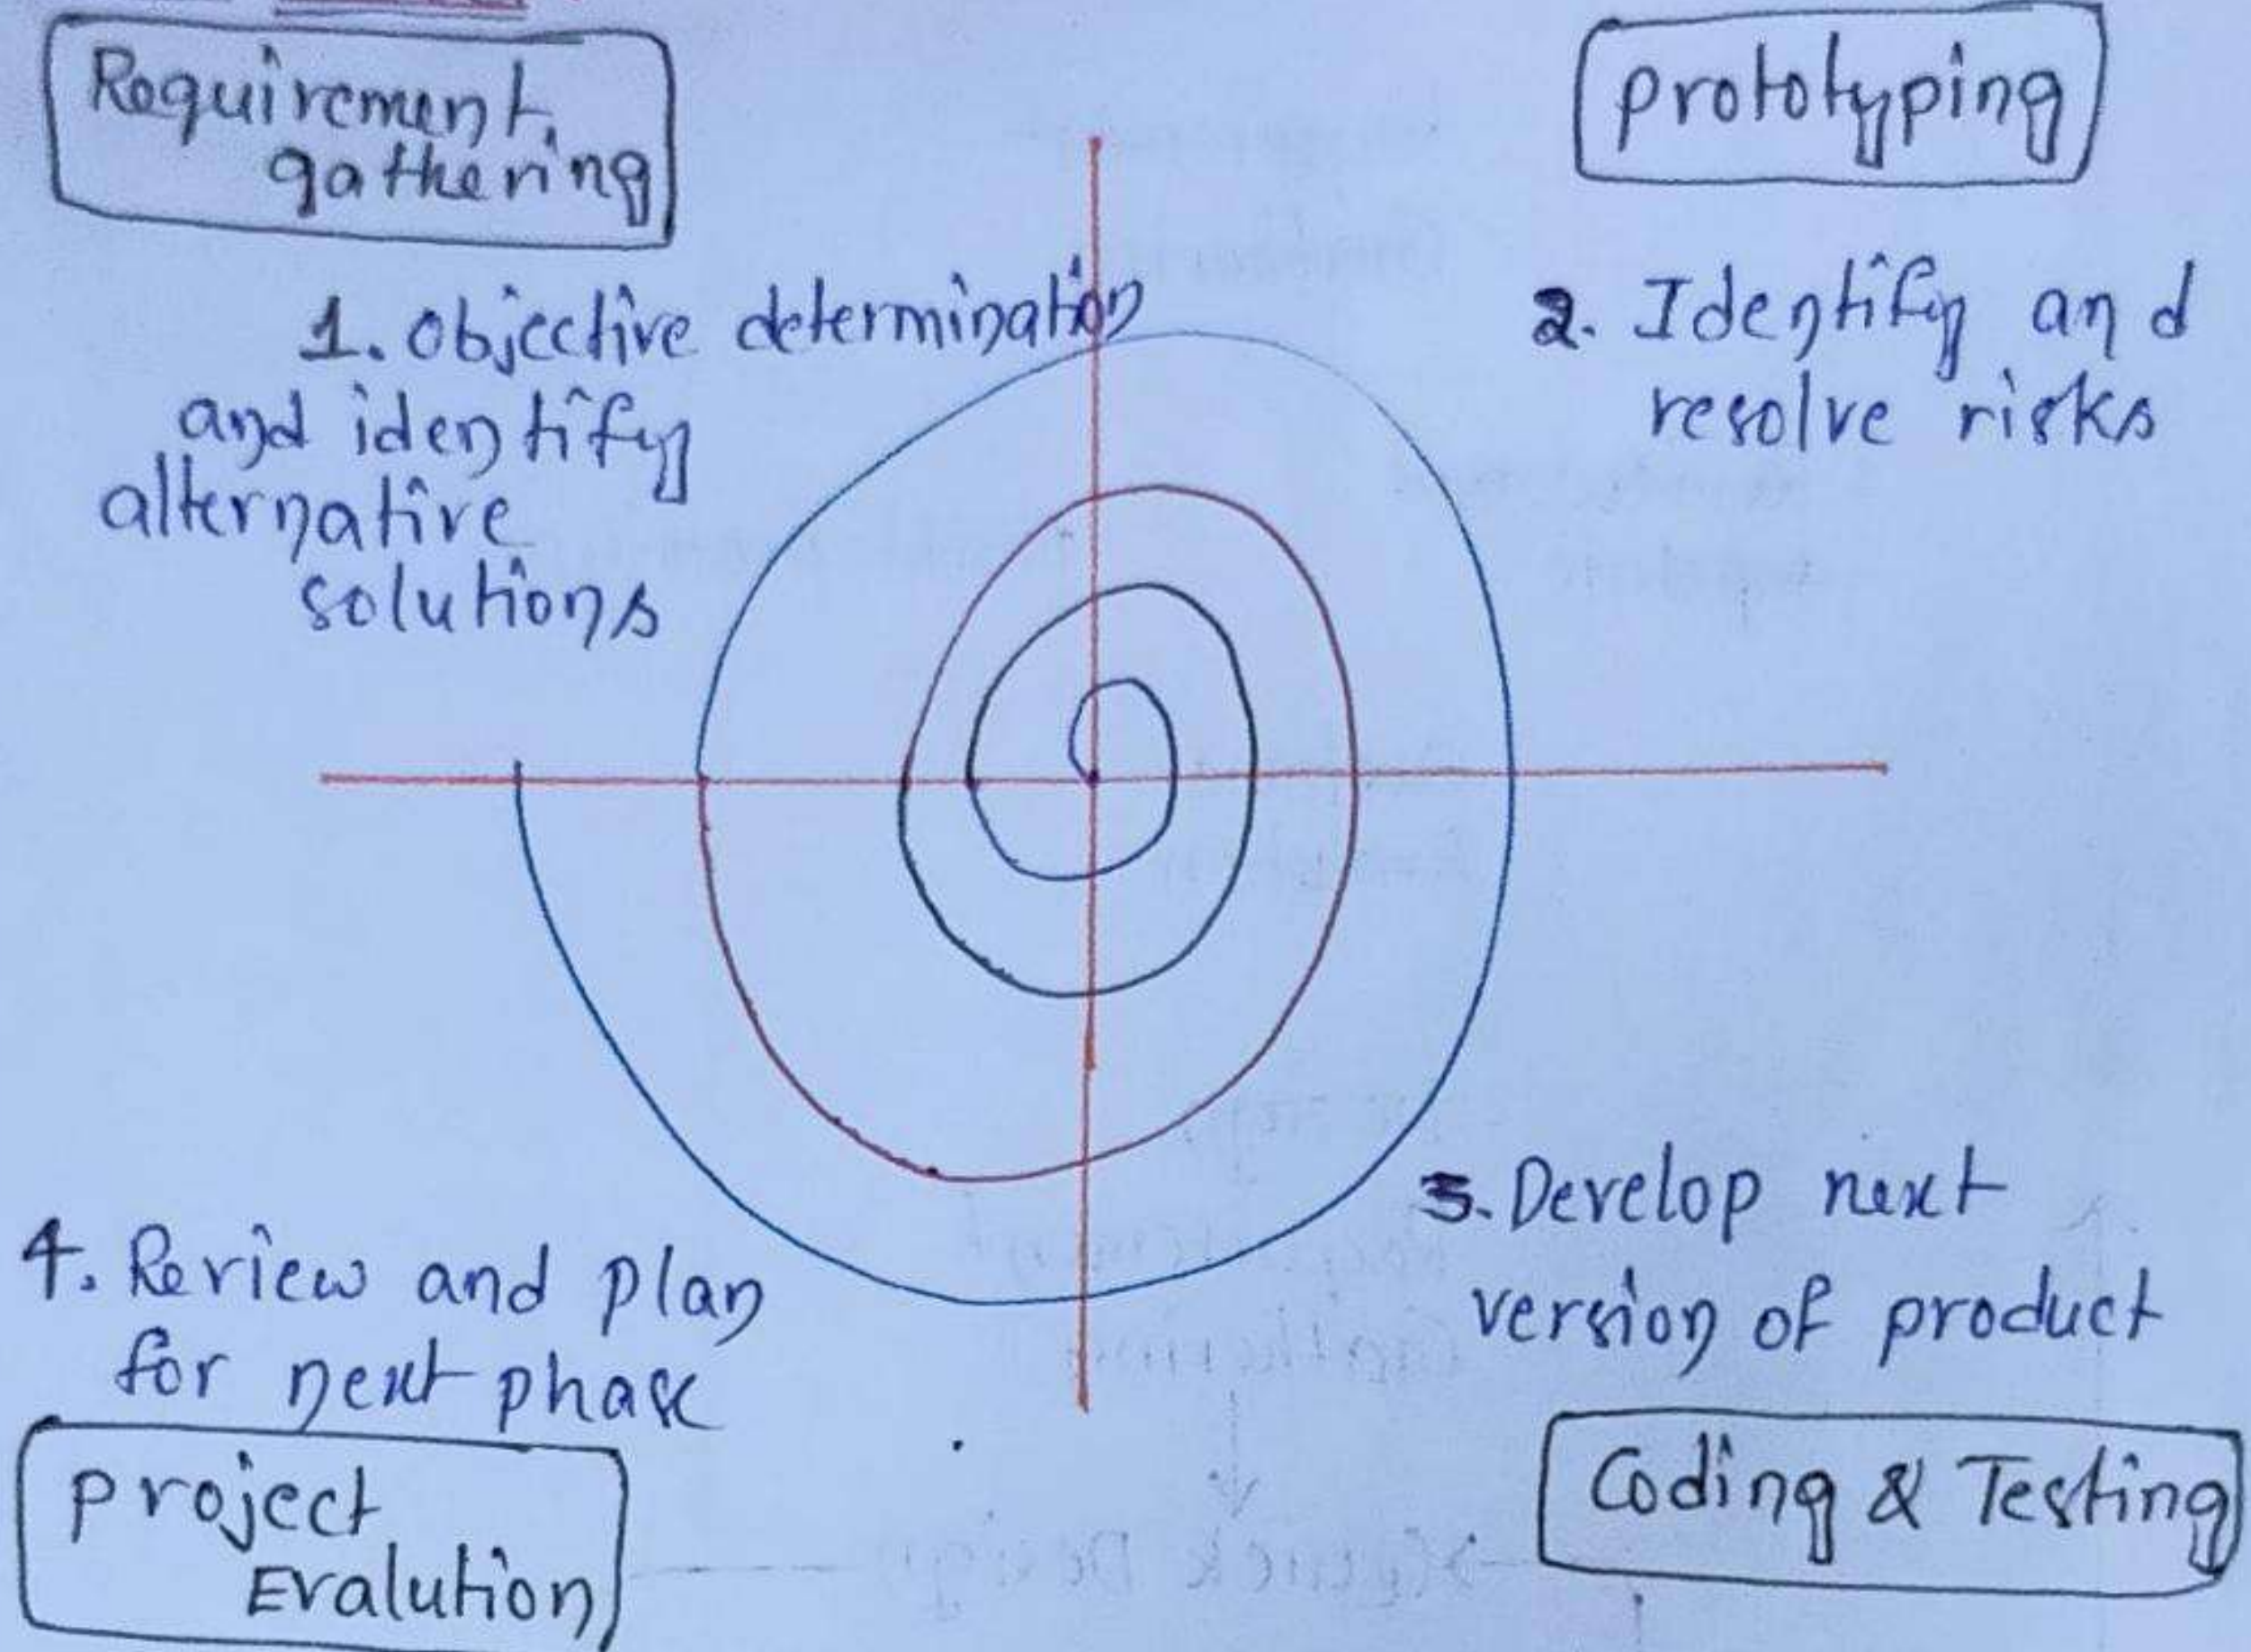 Requirement
gathering
prototyping
1. Objective determination
and identify
alternative
solutions
2. Identify and
resolve risks
3. Develop next
version of product
Coding & Testing
4. Review and plan
for next phase
project
Evalution